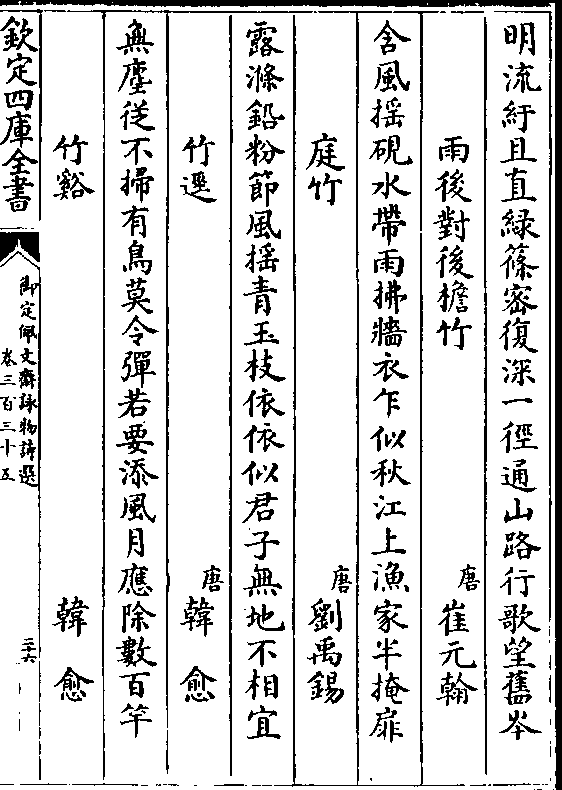 明流紆且直綠篠密復深一徑通山路行歌望舊岑
雨後對後檐竹　唐崔元翰
含風揺硯水帶雨拂牆衣乍似秋江上漁家半掩扉
庭竹　唐劉禹錫
露滌鉛粉節風揺青玉枝依依似君子無地不相宜
竹逕　唐韓愈
無塵從不掃有鳥莫令彈若要添風月應除數百竿
竹谿　韓愈
欽定四庫全書
御定佩文齋詠物詩選
卷三百三十五
二十六